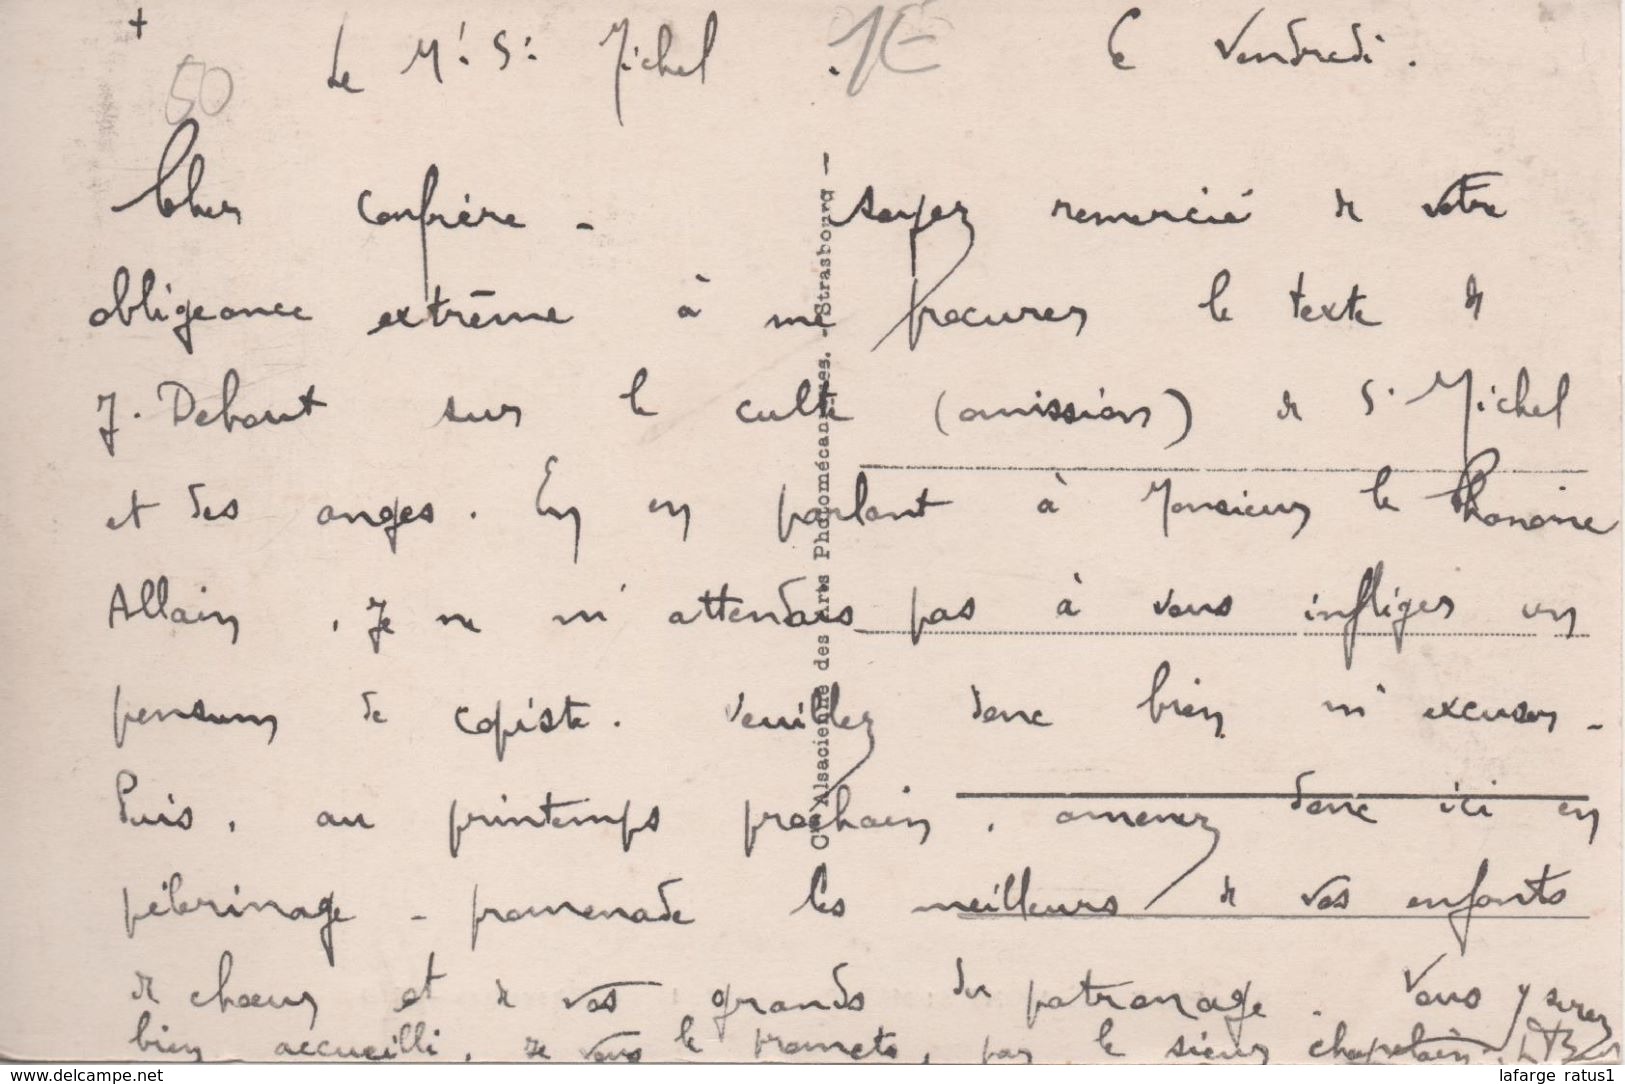 +
50
Le Mt St Michel . 1E Ce Vendredi .
Cher confrère - soyez remercié de votre
obligeance extrême à me procurer le texte de
J. Debout sur le culte (omission) de S. Michel
et des anges. En en parlant à Monsieur le Chanoine
Allain, je ne m'attendais pas à vous infliger un
pensum de copiste. Veuillez donc bien m'excuser -
Puis, au printemps prochain, amenez donc ici en
pélerinage - promenade les meilleurs de vos enfants
de chœur et de vos grands du patronage. Vous y serez
bien accueilli, je vous le promets, par le sieur chapelain.
Cie Alsacienne des Arts Photomécaniques. - Strasbourg -
www.delcampe.net
lafarge ratus1